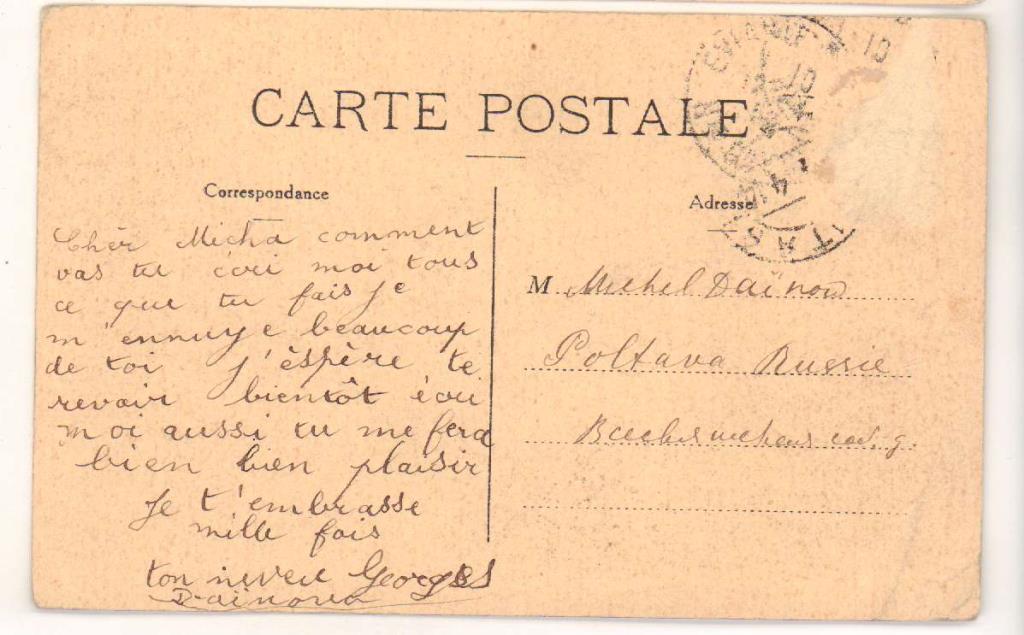 CARTE POSTALE
Correspondance
Adresse
Cher Micha comment
vas tu écri moi tous
ce que tu fais je
m'ennuye beaucoup
de toi j'éspère te
revoir bientôt écri
moi aussi tu me fera
bien bien plaisir
Je t'embrasse
mille fois
ton neveu Georges
Daïnow
M Michel Daïnow
Poltava Russie